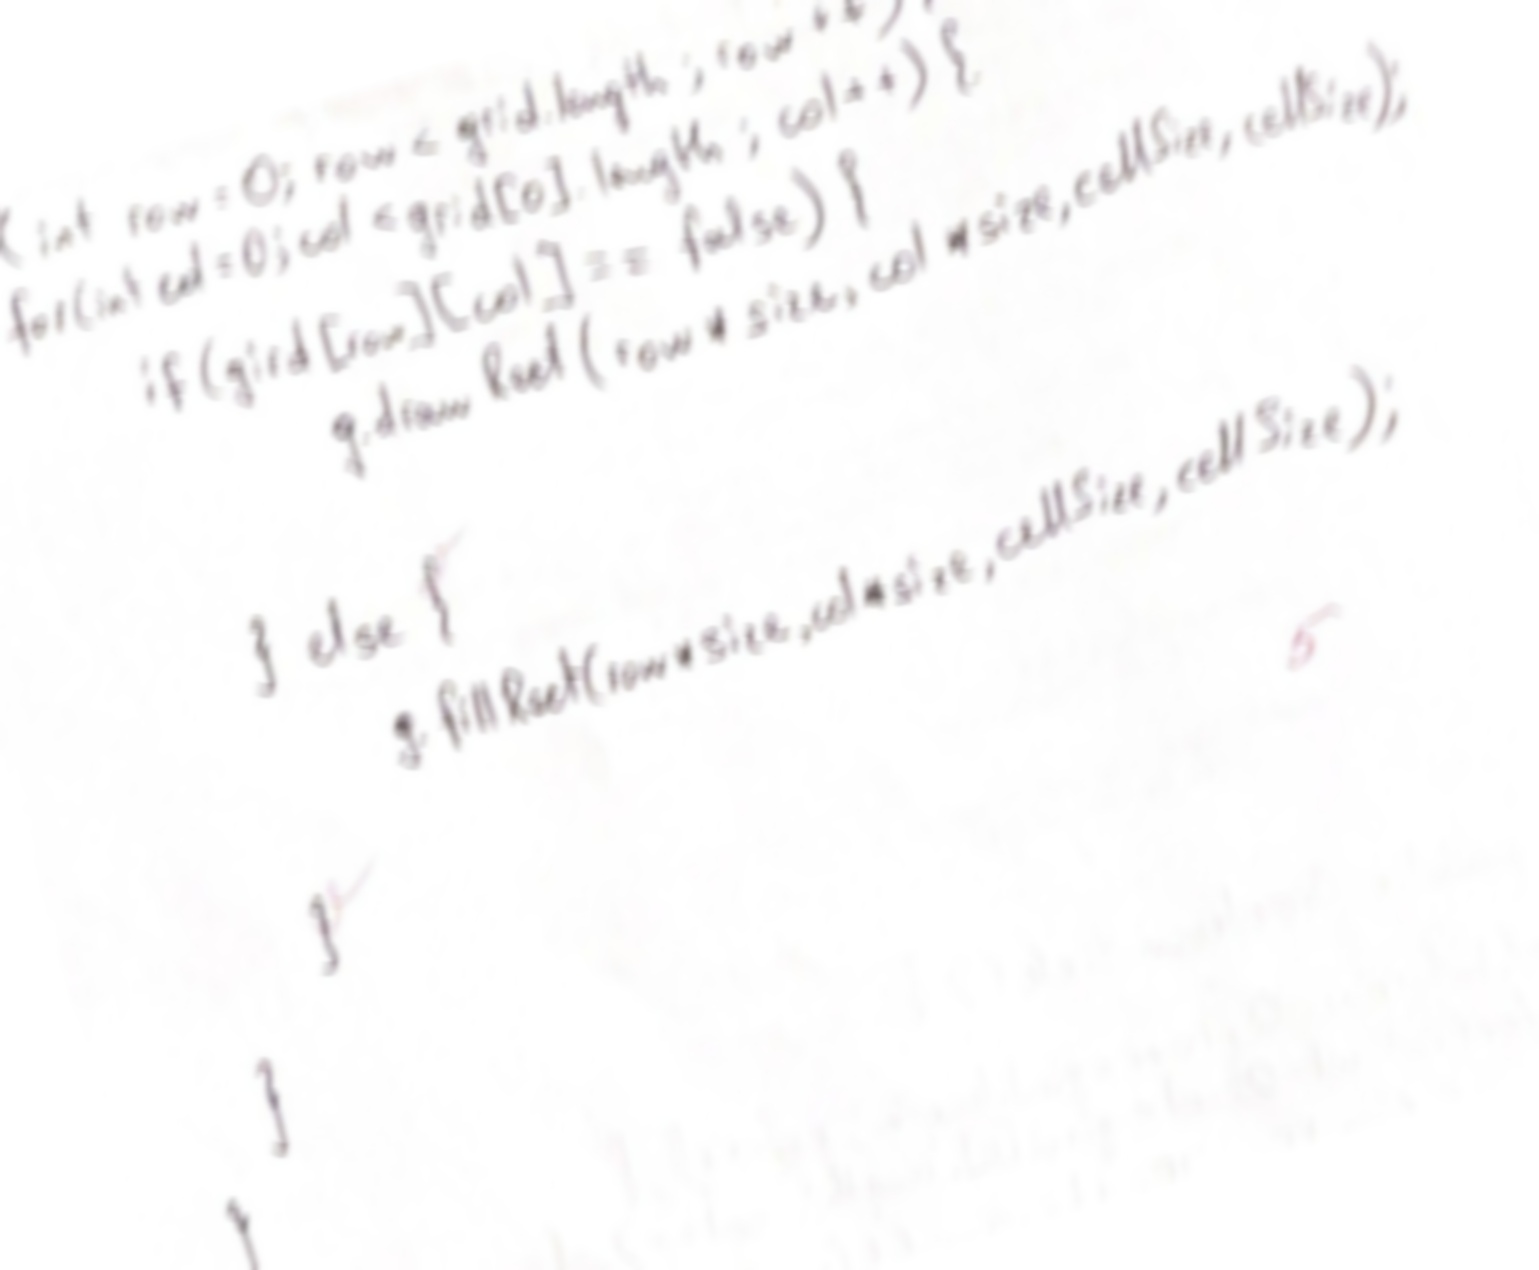 (int row = 0; row < grid.length; row++)
for(int col = 0; col < grid[0].length; col++) {
if (gird[row][col] == false) {
g.draw Rect (row * size, col * size, cellSize, cellSize);
} else {
g.fillRect(row * size, col * size, cellSize, cellSize);
5
}
}
}